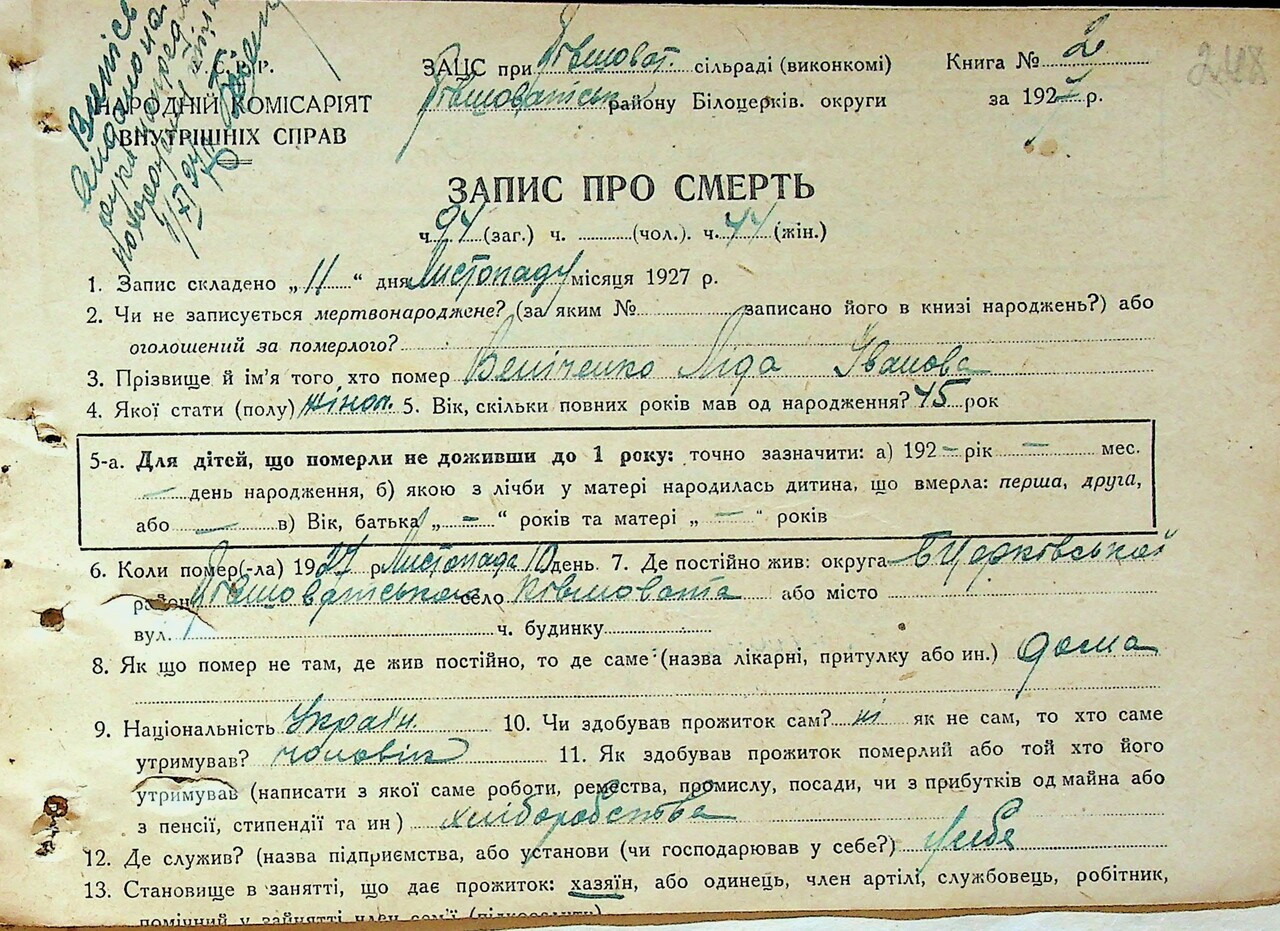 У.С.Р.Р.
НАРОДНІЙ КОМІСАРІЯТ
ВНУТРІШНІХ СПРАВ
ЗАЦС при Ківшоват. сільраді (виконкомі)
Ківшоватськ району Білоцерків. округи
Книга № 2
за 1927 р.
248
ЗАПИС ПРО СМЕРТЬ
ч. 94 (заг.) ч. (чол.). ч. 44 (жін.)
1. Запис складено „ 11 “ дня Листопаду місяця 1927 р.
2. Чи не записується мертвонароджене? (за яким № записано його в книзі народжень?) або
оголошений за померлого?
3. Прізвище й ім'я того, хто помер Ліда Іванова
4. Якої стати (полу) жіноч. 5. Вік, скільки повних років мав од народження? 45 рок
5-а. Для дітей, що померли не доживши до 1 року: точно зазначити: а) 192 – рік – мес.
– день народження, б) якою з лічби у матері народилась дитина, що вмерла: перша, друга,
або – в) Вік, батька „ – “ років та матері „ – “ років
6. Коли помер(-ла) 1927 р. Листопада 10 день. 7. Де постійно жив: округа Б Церковської
район Ківшоватського село Ківшовата або місто
вул. ч. будинку
8. Як що помер не там, де жив постійно, то де саме (назва лікарні, притулку або ин.) дома
9. Національність Україн. 10. Чи здобував прожиток сам? ні як не сам, то хто саме
утримував? чоловік 11. Як здобував прожиток померлий або той хто його
утримував (написати з якої саме роботи, ремества, промислу, посади, чи з прибутків од майна або
з пенсії, стипендії та ин ) хліборобства
12. Де служив? (назва підприємства, або установи (чи господарював у себе?) у себе
13. Становище в занятті, що дає прожиток: хазяїн, або одинець, член артілі, службовець, робітник,
помічний у зайнятті член сем'ї (підкреслити)